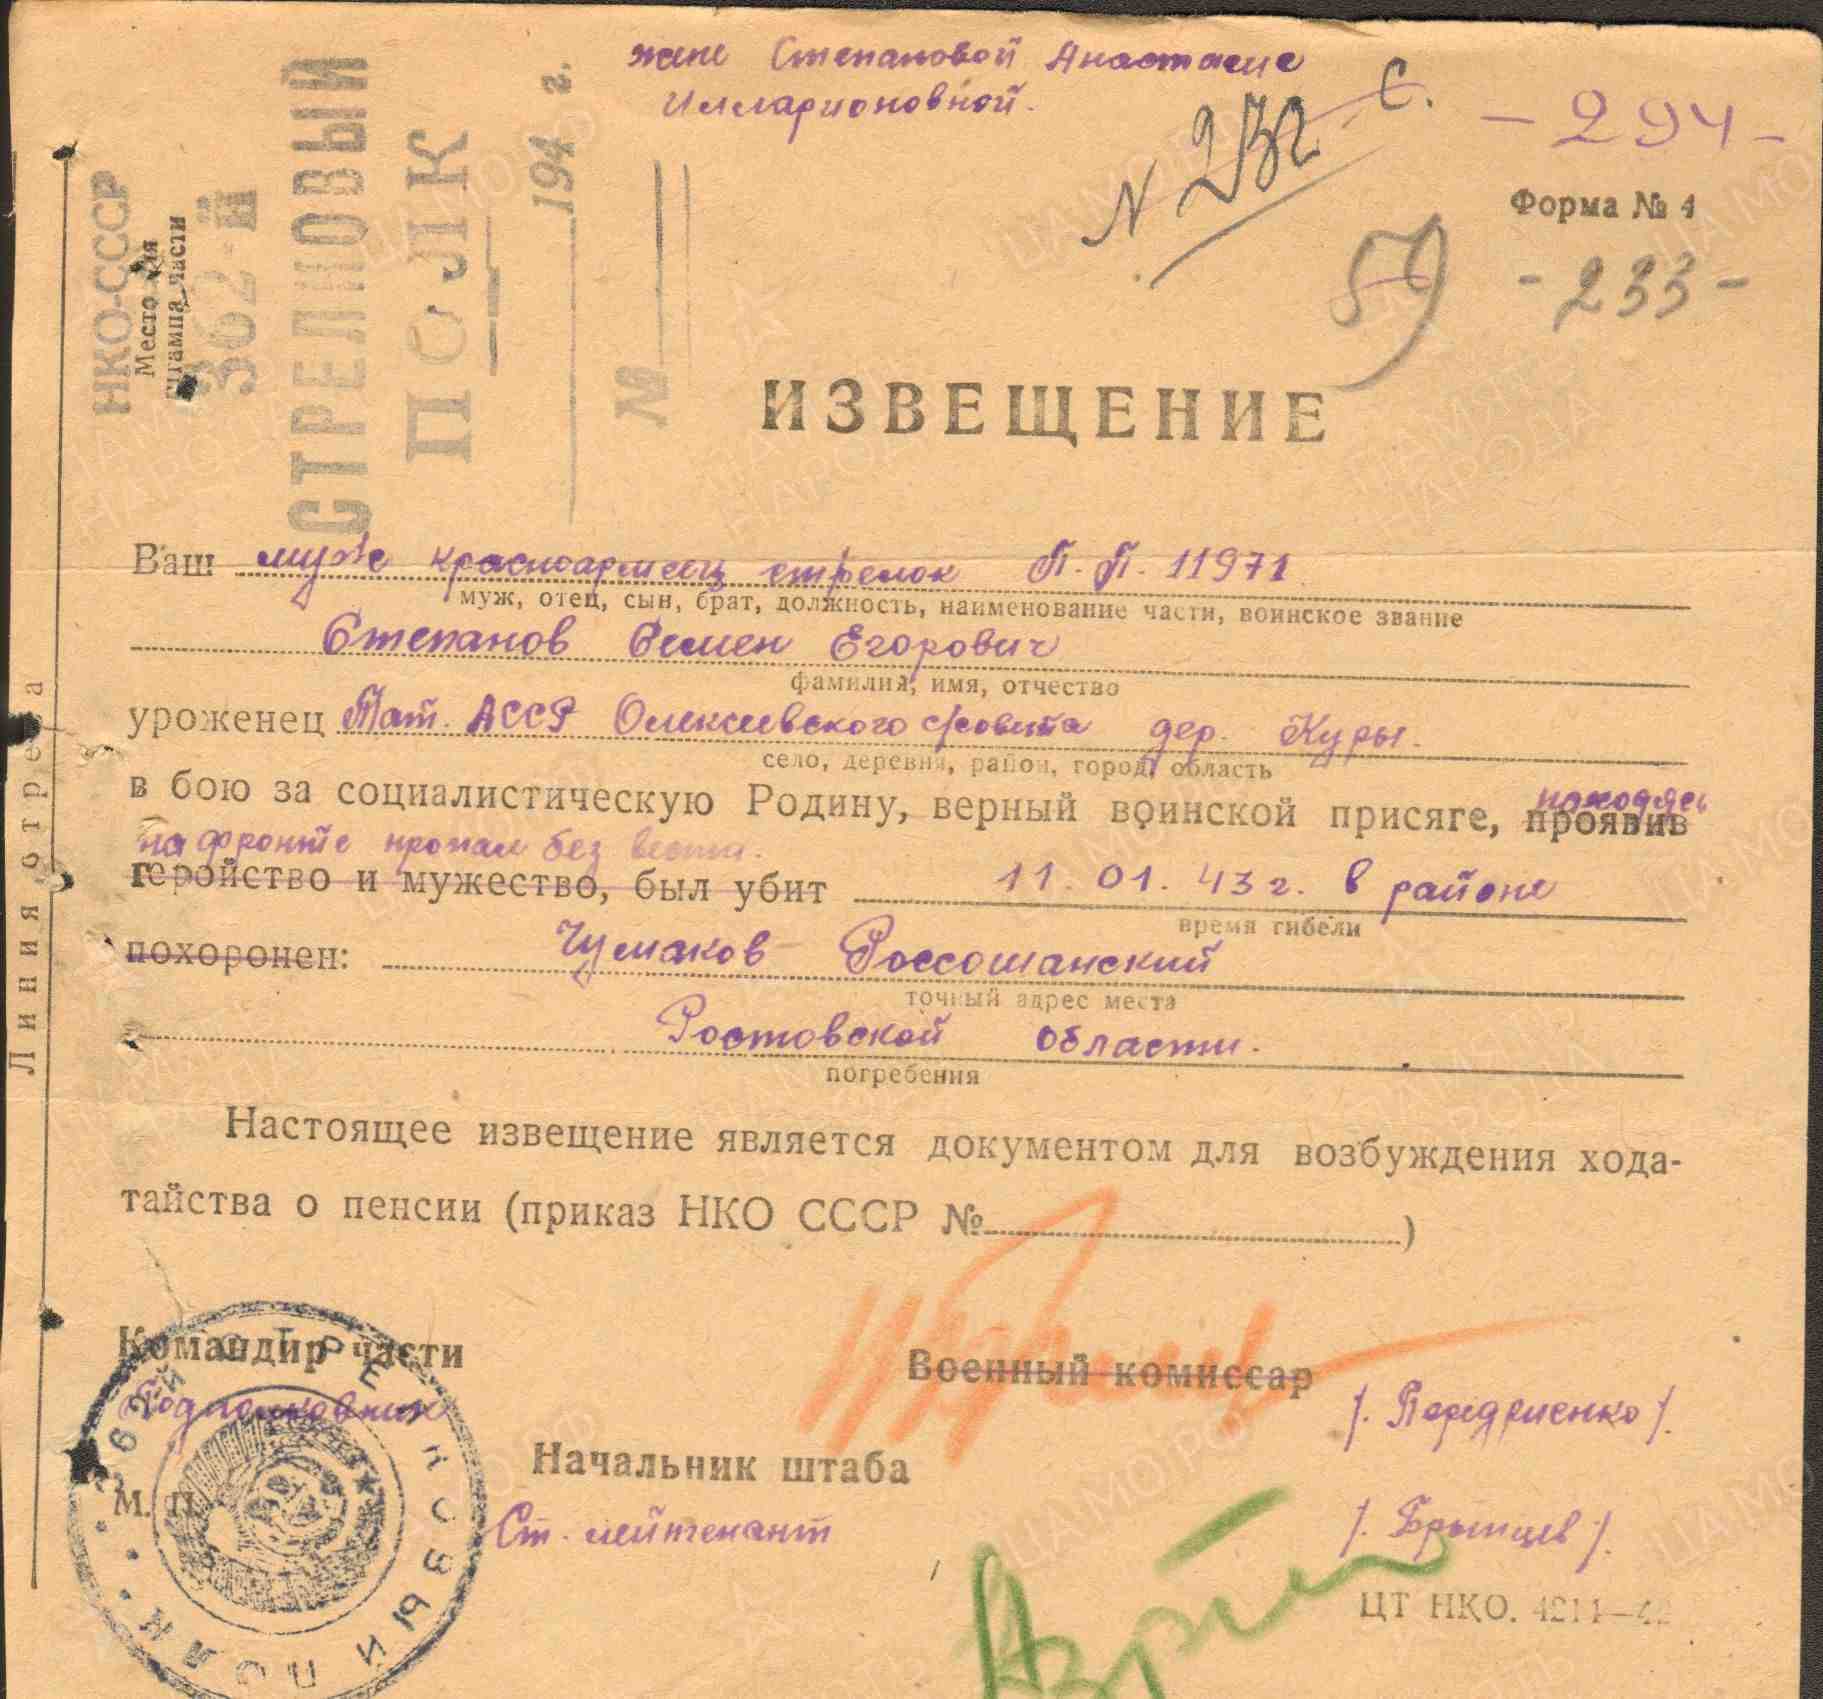 жене Степановой Анастасие
Илларионовной.
N 232 с.
- 294 -
Форма № 4
59
- 233 -
НКО-СССР
Место для
штампа части
362-й
СТРЕЛКОВЫЙ
ПОЛК
194 г.
№
ИЗВЕЩЕНИЕ
Ваш муж красноармеец стрелок П.П. 11971
муж, отец, сын, брат, должность, наименование части, воинское звание
Степанов Семен Егорович
фамилия, имя, отчество
уроженец Тат. АССР Олексеевского с/совита дер. Куры.
село, деревня, район, город, область
в бою за социалистическую Родину, верный воинской присяге, проявив
находясь
на фронте пропал без вести.
геройство и мужество, был убит 11.01.43 г. в районе
время гибели
похоронен: Чумаков Россошанский
точный адрес места
Ростовской области.
погребения
Настоящее извещение является документом для возбуждения хода-
тайства о пенсии (приказ НКО СССР № )
Командир части
Подполковник
Военный комиссар
/. Передриенко /.
М. П.
Начальник штаба
Ст. лейтенант
/. Брынцев /.
362Й СТРЕЛКОВЫЙ ПОЛК
ЦТ НКО. 4211—42
Линия отреза
ЦАМО РФ
ПАМЯТЬ НАРОДА